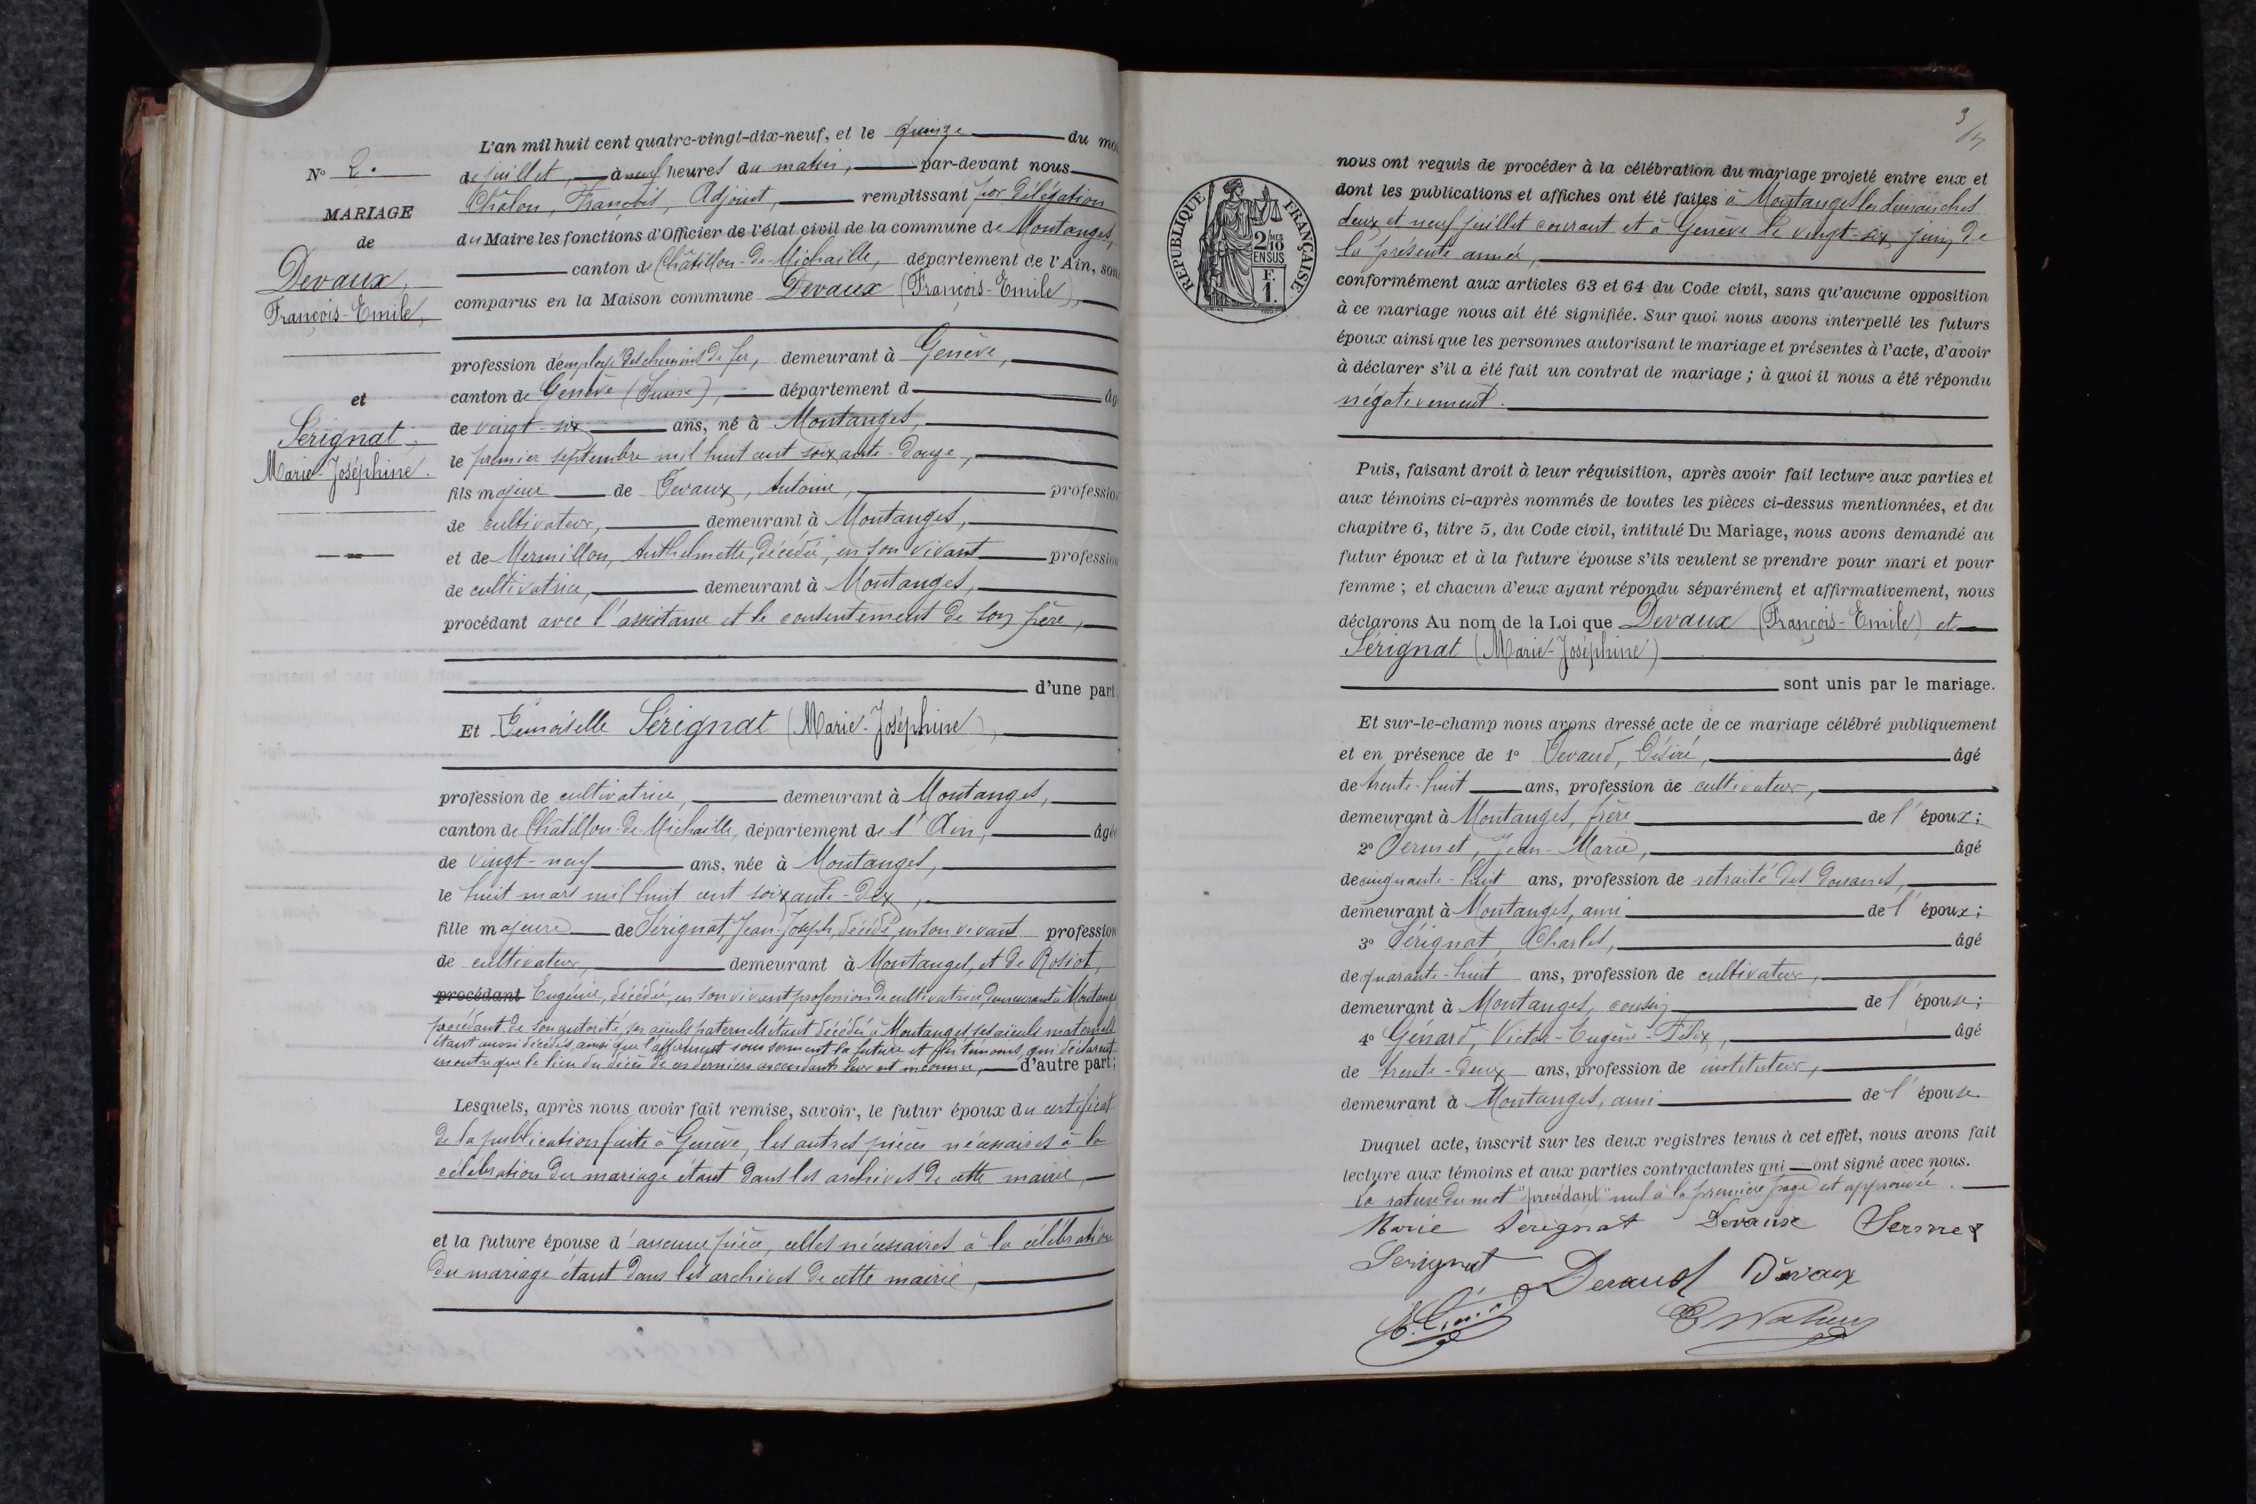 L'an mil huit cent quatre-vingt-dix-neuf, et le quinze du moi
de juillet, à neuf heures du matin, par-devant nous
Châlon, François, Adjoint, remplissant par délégation
du Maire les fonctions d'Officier de l'état civil de la commune de Montanges,
canton de Châtillon-de-Michaille, département de l'Ain, son
comparus en la Maison commune Devaux (François-Emile),
profession d'employé des chemins de fer, demeurant à Genève,
canton de Genève (Suisse), département d âg
de vingt-six ans, né à Montanges,
le premier septembre mil huit cent soixante-douze,
fils majeur de Devaux, Antoine, profession
de cultivateur, demeurant à Montanges,
et de Mermillon, Anthelmette, décédée, en son vivant profession
de cultivatrice, demeurant à Montanges,
procédant avec l'assistance et le consentement de son père,
d'une part
Et Demoiselle Sérignat (Marie-Joséphine),
profession de cultivatrice, demeurant à Montanges,
canton de Châtillon-de-Michaille, département de l'Ain, âgée
de vingt-neuf ans, née à Montanges,
le huit mars mil huit cent soixante-dix,
fille majeure de Sérignat, Jean-Joseph, décédé, en son vivant profession
de cultivateur, demeurant à Montanges, et de Rosiot,
procédant Eugénie, décédée, en son vivant profession de cultivatrice, demeurant à Montanges
procédant de son autorité, ses aïeuls paternels étant décédés à Montanges ses aïeuls maternels
étant aussi décédés, ainsi que l'affirment sous serment la future et les témoins, qui déclarent
en outre que le lieu du décès de ces derniers ascendants leur est inconnu, d'autre part;
Lesquels, après nous avoir fait remise, savoir, le futur époux du certificat
de la publication faite à Genève, les autres pièces nécessaires à la
célébration du mariage étant dans les archives de cette mairie,
et la future épouse d'aucune pièce, celles nécessaires à la célébration
du mariage étant dans les archives de cette mairie,
N° 2.
MARIAGE
de
Devaux,
François-Emile,
et
Sérignat
Marie-Joséphine.
3
RÉPUBLIQUE FRANÇAISE
2/10 EN SUS
F. 1.
nous ont requis de procéder à la célébration du mariage projeté entre eux et
dont les publications et affiches ont été faites à Montanges les dimanches
deux et neuf juillet courant et à Genève le vingt-six juin de
la présente année,
conformément aux articles 63 et 64 du Code civil, sans qu'aucune opposition
à ce mariage nous ait été signifiée. Sur quoi nous avons interpellé les futurs
époux ainsi que les personnes autorisant le mariage et présentes à l'acte, d'avoir
à déclarer s'il a été fait un contrat de mariage; à quoi il nous a été répondu
négativement.
Puis, faisant droit à leur réquisition, après avoir fait lecture aux parties et
aux témoins ci-après nommés de toutes les pièces ci-dessus mentionnées, et du
chapitre 6, titre 5, du Code civil, intitulé Du Mariage, nous avons demandé au
futur époux et à la future épouse s'ils veulent se prendre pour mari et pour
femme; et chacun d'eux ayant répondu séparément et affirmativement, nous
déclarons Au nom de la Loi que Devaux (François-Emile) et
Sérignat (Marie-Joséphine)
sont unis par le mariage.
Et sur-le-champ nous avons dressé acte de ce mariage célébré publiquement
et en présence de 1° Devaud, Désiré, âgé
de trente-huit ans, profession de cultivateur,
demeurant à Montanges, frère de l'époux;
2° Sermet, Jean-Marie, âgé
de cinquante-huit ans, profession de retraité des douanes,
demeurant à Montanges, ami de l'époux;
3° Sérignat, Charles, âgé
de quarante-huit ans, profession de cultivateur,
demeurant à Montanges, cousin de l'épouse;
4° Génard, Victor-Eugène-Félix, âgé
de trente-deux ans, profession de instituteur,
demeurant à Montanges, ami de l'épouse
Duquel acte, inscrit sur les deux registres tenus à cet effet, nous avons fait
lecture aux témoins et aux parties contractantes qui ont signé avec nous.
La rature du mot "procédant" nul à la première page est approuvée.
Marie Serignat Devaux Sermet
Serignat Devaud Devaux